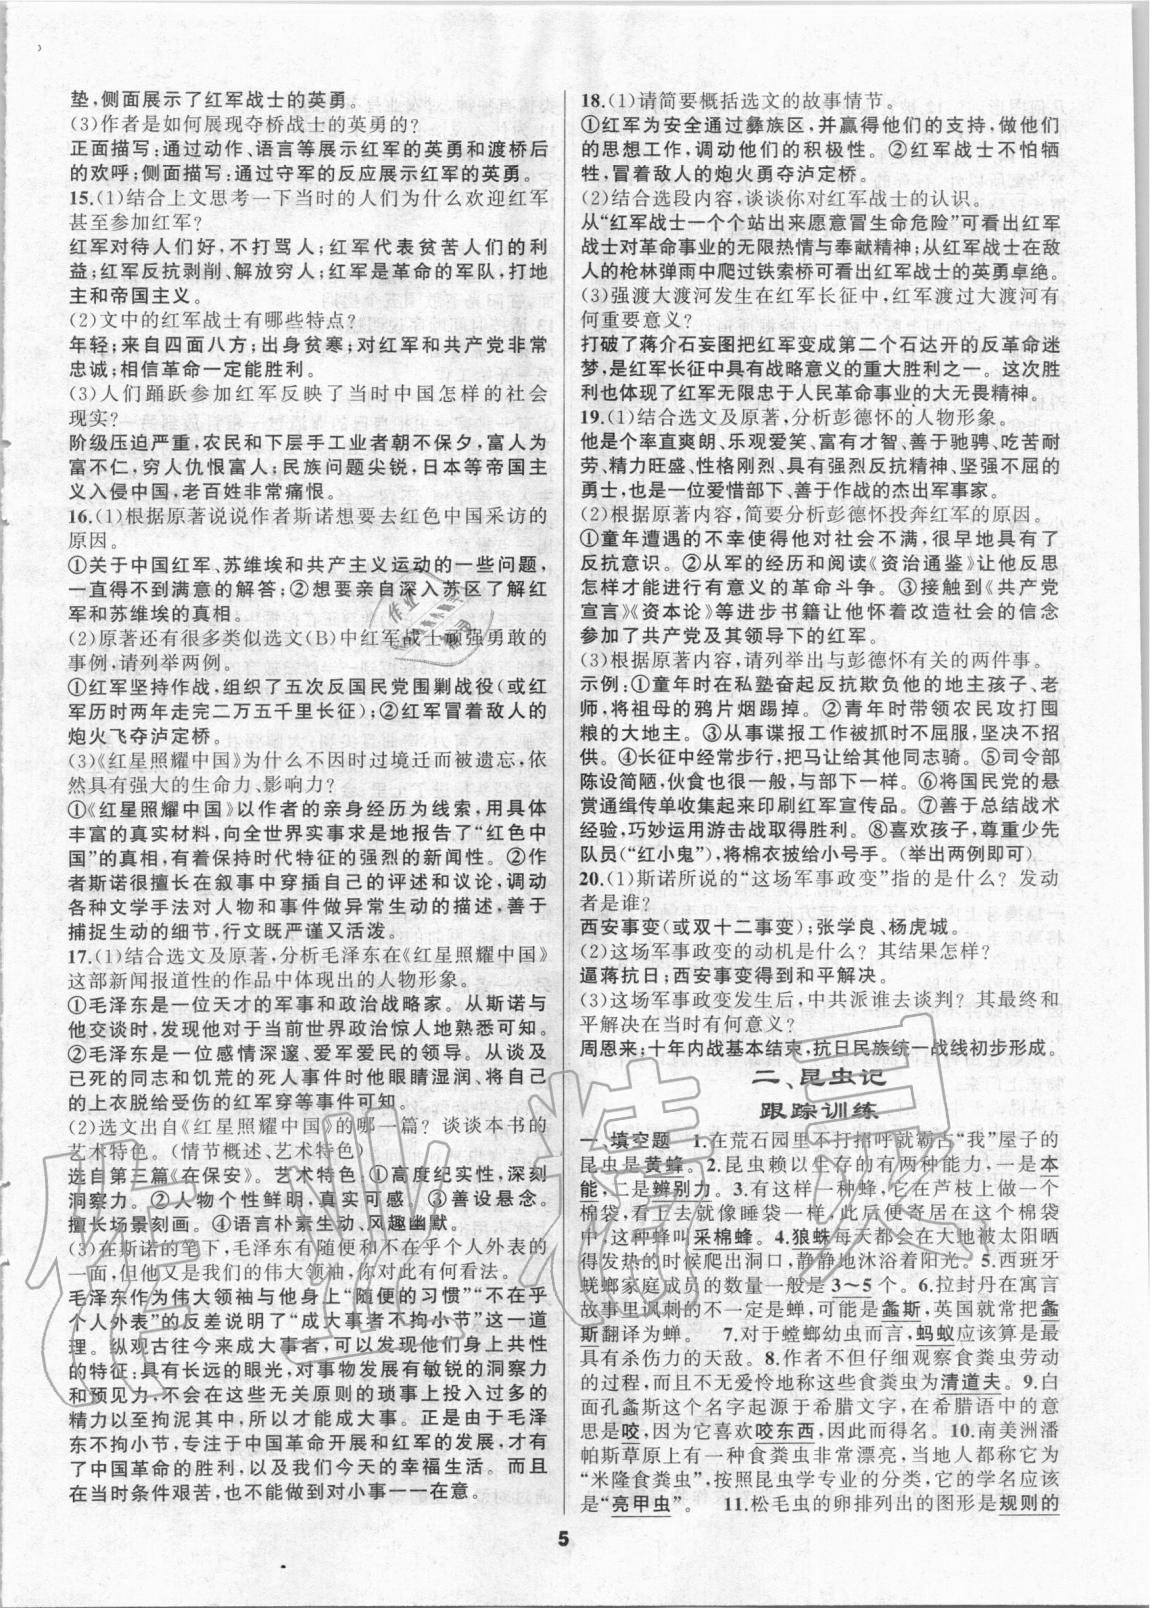 垫,侧面展示了红军战士的英勇。
(3)作者是如何展现夺桥战士的英勇的?
正面描写:通过动作、语言等展示红军的英勇和渡桥后
的欢呼;侧面描写:通过守军的反应展示红军的英勇。
15.(1)结合上文思考一下当时的人们为什么欢迎红军
甚至参加红军?
红军对待人们好,不打骂人;红军代表贫苦人们的利
益;红军反抗剥削、解放穷人;红军是革命的军队,打地
主和帝国主义。
(2)文中的红军战士有哪些特点?
年轻;来自四面八方;出身贫寒;对红军和共产党非常
忠诚;相信革命一定能胜利。
(3)人们踊跃参加红军反映了当时中国怎样的社会
现实?
阶级压迫严重,农民和下层手工业者朝不保夕,富人为
富不仁,穷人仇恨富人;民族问题尖锐,日本等帝国主
义入侵中国,老百姓非常痛恨。
16.(1)根据原著说说作者斯诺想要去红色中国采访的
原因。
①关于中国红军、苏维埃和共产主义运动的一些问题,
一直得不到满意的解答;②想要亲自深入苏区了解红
军和苏维埃的真相。
(2)原著还有很多类似选文(B)中红军战士顽强勇敢的
事例,请列举两例。
①红军坚持作战,组织了五次反国民党围剿战役(或红
军历时两年走完二万五千里长征);②红军冒着敌人的
炮火飞夺泸定桥。
(3)《红星照耀中国》为什么不因时过境迁而被遗忘,依
然具有强大的生命力、影响力?
①《红星照耀中国》以作者的亲身经历为线索,用具体
丰富的真实材料,向全世界实事求是地报告了“红色中
国”的真相,有着保持时代特征的强烈的新闻性。②作
者斯诺很擅长在叙事中穿插自己的评述和议论,调动
各种文学手法对人物和事件做异常生动的描述,善于
捕捉生动的细节,行文既严谨又活泼。
17.(1)结合选文及原著,分析毛泽东在《红星照耀中国》
这部新闻报道性的作品中体现出的人物形象。
①毛泽东是一位天才的军事和政治战略家。从斯诺与
他交谈时,发现他对于当前世界政治惊人地熟悉可知。
②毛泽东是一位感情深邃、爱军爱民的领导。从谈及
已死的同志和饥荒的死人事件时他眼睛湿润、将自己
的上衣脱给受伤的红军穿等事件可知。
(2)选文出自《红星照耀中国》的哪一篇?谈谈本书的
艺术特色。(情节概述、艺术特色)
选自第三篇《在保安》。艺术特色:①高度纪实性,深刻
洞察力。②人物个性鲜明,真实可感。③善设悬念。
擅长场景刻画。④语言朴素生动、风趣幽默。
(3)在斯诺的笔下,毛泽东有随便和不在乎个人外表的
一面,但他又是我们的伟大领袖,你对此有何看法。
毛泽东作为伟大领袖与他身上“随便的习惯”“不在乎
个人外表”的反差说明了“成大事者不拘小节”这一道
理。纵观古往今来成大事者,可以发现他们身上共性
的特征:具有长远的眼光,对事物发展有敏锐的洞察力
和预见力,不会在这些无关原则的琐事上投入过多的
精力以至拘泥其中,所以才能成大事。正是由于毛泽
东不拘小节,专注于中国革命开展和红军的发展,才有
了中国革命的胜利,以及我们今天的幸福生活。而且
在当时条件艰苦,也不能做到对小事一一在意。
18.(1)请简要概括选文的故事情节。
①红军为安全通过彝族区,并赢得他们的支持,做他们
的思想工作,调动他们的积极性。②红军战士不怕牺
牲,冒着敌人的炮火勇夺泸定桥。
(2)结合选段内容,谈谈你对红军战士的认识。
从“红军战士一个个站出来愿意冒生命危险”可看出红军
战士对革命事业的无限热情与奉献精神;从红军战士在敌
人的枪林弹雨中爬过铁索桥可看出红军战士的英勇卓绝。
(3)强渡大渡河发生在红军长征中,红军渡过大渡河有
何重要意义?
打破了蒋介石妄图把红军变成第二个石达开的反革命迷
梦,是红军长征中具有战略意义的重大胜利之一。这次胜
利也体现了红军无限忠于人民革命事业的大无畏精神。
19.(1)结合选文及原著,分析彭德怀的人物形象。
他是个率直爽朗、乐观爱笑、富有才智、善于驰骋、吃苦耐
劳、精力旺盛、性格刚烈、具有反抗精神、坚强不屈的
勇士,也是一位爱惜部下、善于作战的杰出军事家。
(2)根据原著内容,简要分析彭德怀投奔红军的原因。
①童年遭遇的不幸使他对社会不满,很早地具有了
反抗意识。②从军的经历和阅读《资治通鉴》让他反思
怎样才能进行有意义的革命斗争。③接触到《共产党
宣言》《资本论》等进步书籍让他怀着改造社会的信念
参加了共产党及其领导下的红军。
(3)根据原著内容,请列举出与彭德怀有关的两件事。
示例:①童年时在私塾奋起反抗欺负他的地主孩子、老
师,将祖母的鸦片烟踢掉。②青年时带领农民攻打囤
粮的大地主。③从事谍报工作被抓时不屈服,坚决不招
供。④长征中经常步行,把马让给其他同志骑。⑤司令部
陈设简陋,伙食也很一般,与部下一样。⑥将国民党的悬
赏通缉传单收集起来印刷红军宣传品。⑦善于总结战术
经验,巧妙运用游击战取得胜利。⑧喜欢孩子,尊重少先
队员(“红小鬼”),将棉衣披给小号手。(举出两例即可)
20.(1)斯诺所说的“这场军事政变”指的是什么?发动
者是谁?
西安事变(或双十二事变);张学良、杨虎城。
(2)这场军事政变的动机是什么?其结果怎样?
逼蒋抗日;西安事变得到和平解决。
(3)这场军事政变发生后,中共派谁去谈判?其最终和
平解决在当时有何意义?
周恩来;十年内战基本结束,抗日民族统一战线初步形成。
二、昆虫记
跟踪训练
一、填空题 1.在荒石园里不打招呼就霸占“我”屋子的
昆虫是黄蜂。2.昆虫赖以生存的有两种能力,一是本
能,二是辨别力。3.有这样一种蜂,它在芦枝上做一个
棉袋,看上去就像睡袋一样,此后便寄居在这个棉袋
中,这种蜂叫采棉蜂。4.狼蛛每天都会在大地被太阳晒
得发热的时候爬出洞口,静静地沐浴着阳光。5.西班牙
蜣螂家庭成员的数量一般是3～5个。6.拉封丹在寓言
故事里讽刺的不是蝉,可能是螽斯,英国就常常把螽
斯翻译为蝉。 7.对于螳螂幼虫而言,蚂蚁应该算是最
具有杀伤力的天敌。8.作者不但仔细观察食粪虫劳动
的过程,而且不无爱怜地称这些食粪虫为清道夫。9.白
面孔螽斯这个名字起源于希腊文字,在希腊语中的意
思是咬,因为它喜欢咬东西,因此而得名。10.南美洲潘
帕斯草原上有一种食粪虫非常漂亮,当地人都称它为
“米隆食粪虫”,按照昆虫学专业的分类,它的学名应该
是“亮甲虫”。 11.松毛虫的卵排列出的图形是规则的
5
作业精灵